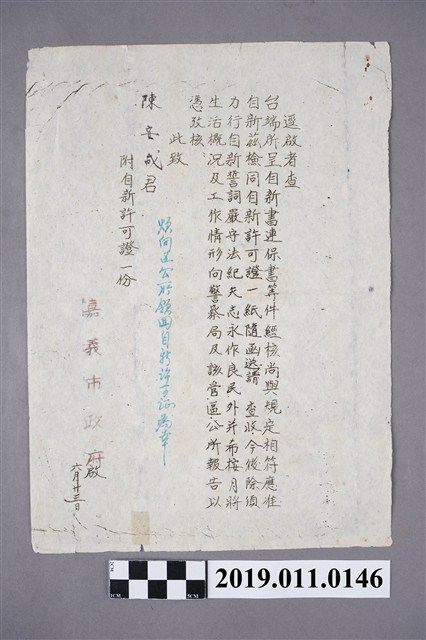 逕啟者查
台端所呈自新書連保書等件經核尚與規定相符應准
自新茲檢同自新許可證一紙隨函送請 查收今後除須
力行自新誓詞嚴守法紀矢志永作良民外并希按月將
生活概況及工作情形向警察局及該管區公所報告以
憑攷核
此致
陳安成君
須向區公所領回自新許可證為幸
附自新許可證一份
嘉義市政府啟
六月廿三日
1CM
5CM
2019.011.0146